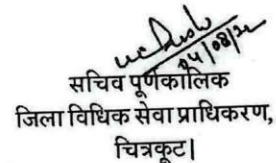 सचिव पूर्णकालिक
जिला विधिक सेवा प्राधिकरण,
चित्रकूट|